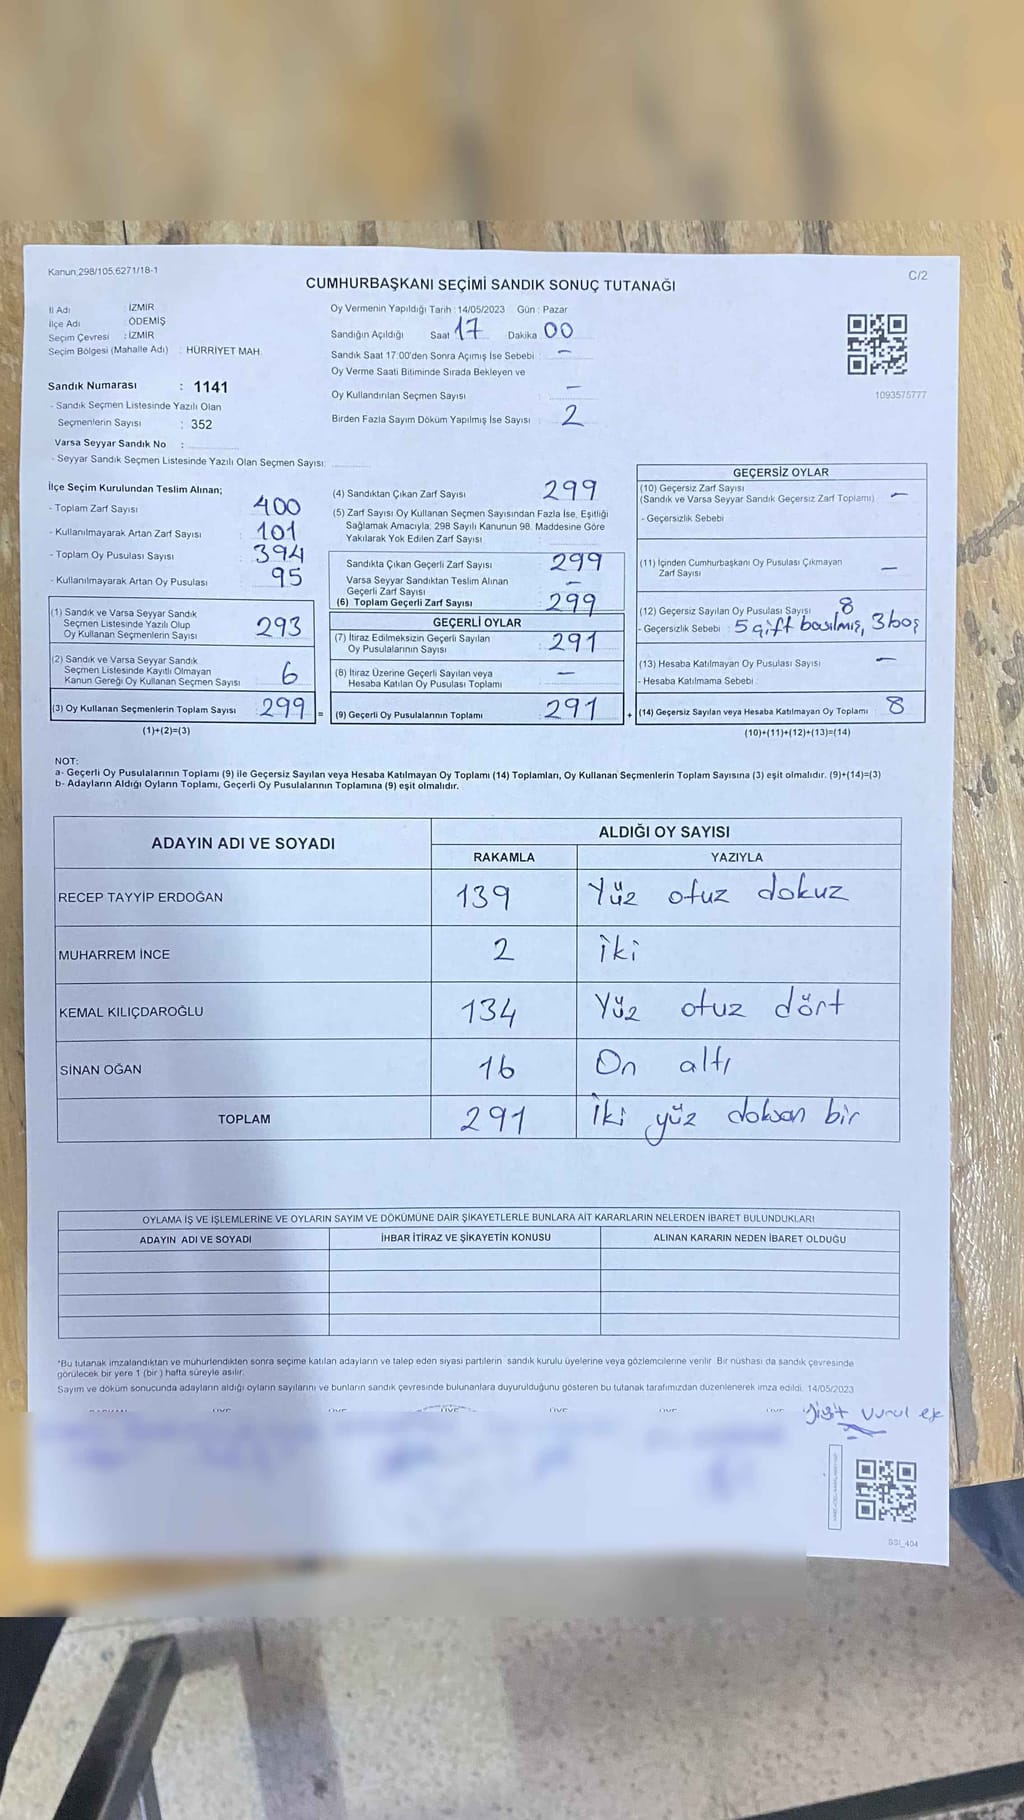 Kanun.298/105,6271/18-1
C/2
CUMHURBAŞKANI SEÇİMİ SANDIK SONUÇ TUTANAĞI
İl Adı : İZMİR
İlçe Adı : ÖDEMİŞ
Seçim Çevresi : İZMİR
Seçim Bölgesi (Mahalle Adı) : HÜRRİYET MAH.
Sandık Numarası : 1141
- Sandık Seçmen Listesinde Yazılı Olan
Seçmenlerin Sayısı : 352
Varsa Seyyar Sandık No :
- Seyyar Sandık Seçmen Listesinde Yazılı Olan Seçmen Sayısı:
Oy Vermenin Yapıldığı Tarih : 14/05/2023 Gün : Pazar
Sandığın Açıldığı Saat 17 Dakika 00
Sandık Saat 17:00'den Sonra Açımış İse Sebebi : –
Oy Verme Saati Bitiminde Sırada Bekleyen ve
Oy Kullandırılan Seçmen Sayısı : –
Birden Fazla Sayım Döküm Yapılmış İse Sayısı : 2
1093575777
İlçe Seçim Kurulundan Teslim Alınan;
- Toplam Zarf Sayısı : 400
- Kullanılmayarak Artan Zarf Sayısı : 101
- Toplam Oy Pusulası Sayısı : 394
- Kullanılmayarak Artan Oy Pusulası : 95
(1) Sandık ve Varsa Seyyar Sandık
Seçmen Listesinde Yazılı Olup
Oy Kullanan Seçmenlerin Sayısı : 293
(2) Sandık ve Varsa Seyyar Sandık
Seçmen Listesinde Kayıtlı Olmayan
Kanun Gereği Oy Kullanan Seçmen Sayısı : 6
(3) Oy Kullanan Seçmenlerin Toplam Sayısı : 299 =
(1)+(2)=(3)
(4) Sandıktan Çıkan Zarf Sayısı : 299
(5) Zarf Sayısı Oy Kullanan Seçmen Sayısından Fazla İse, Eşitliği
Sağlamak Amacıyla, 298 Sayılı Kanunun 98. Maddesine Göre
Yakılarak Yok Edilen Zarf Sayısı :
Sandıkta Çıkan Geçerli Zarf Sayısı : 299
Varsa Seyyar Sandıktan Teslim Alınan
Geçerli Zarf Sayısı : –
(6) Toplam Geçerli Zarf Sayısı : 299
GEÇERLİ OYLAR
(7) İtiraz Edilmeksizin Geçerli Sayılan
Oy Pusulalarının Sayısı : 291
(8) İtiraz Üzerine Geçerli Sayılan veya
Hesaba Katılan Oy Pusulası Toplamı : –
(9) Geçerli Oy Pusulalarının Toplamı : 291 +
GEÇERSİZ OYLAR
(10) Geçersiz Zarf Sayısı
(Sandık ve Varsa Seyyar Sandık Geçersiz Zarf Toplamı) : –
- Geçersizlik Sebebi :
(11) İçinden Cumhurbaşkanı Oy Pusulası Çıkmayan
Zarf Sayısı : –
(12) Geçersiz Sayılan Oy Pusulası Sayısı : 8
- Geçersizlik Sebebi : 5 çift basılmış, 3 boş
(13) Hesaba Katılmayan Oy Pusulası Sayısı : –
- Hesaba Katılmama Sebebi :
(14) Geçersiz Sayılan veya Hesaba Katılmayan Oy Toplamı : 8
(10)+(11)+(12)+(13)=(14)
NOT:
a- Geçerli Oy Pusulalarının Toplamı (9) ile Geçersiz Sayılan veya Hesaba Katılmayan Oy Toplamı (14) Toplamları, Oy Kullanan Seçmenlerin Toplam Sayısına (3) eşit olmalıdır. (9)+(14)=(3)
b- Adayların Aldığı Oyların Toplamı, Geçerli Oy Pusulalarının Toplamına (9) eşit olmalıdır.
ADAYIN ADI VE SOYADI
ALDIĞI OY SAYISI
RAKAMLA YAZIYLA
RECEP TAYYİP ERDOĞAN 139 Yüz otuz dokuz
MUHARREM İNCE 2 İki
KEMAL KILIÇDAROĞLU 134 Yüz otuz dört
SİNAN OĞAN 16 On altı
TOPLAM 291 İki yüz doksan bir
OYLAMA İŞ VE İŞLEMLERİNE VE OYLARIN SAYIM VE DÖKÜMÜNE DAİR ŞİKAYETLERLE BUNLARA AİT KARARLARIN NELERDEN İBARET BULUNDUKLARI
ADAYIN ADI VE SOYADI İHBAR İTİRAZ VE ŞİKAYETİN KONUSU ALINAN KARARIN NEDEN İBARET OLDUĞU
*Bu tutanak imzalandıktan ve mühürlendikten sonra seçime katılan adayların ve talep eden siyasi partilerin sandık kurulu üyelerine veya gözlemcilerine verilir. Bir nüshası da sandık çevresinde
görülecek bir yere 1 (bir) hafta süreyle asılır.
Sayım ve döküm sonucunda adayların aldığı oyların sayılarını ve bunların sandık çevresinde bulunanlara duyurulduğunu gösteren bu tutanak tarafımızdan düzenlenerek imza edildi. 14/05/2023
SSI_404